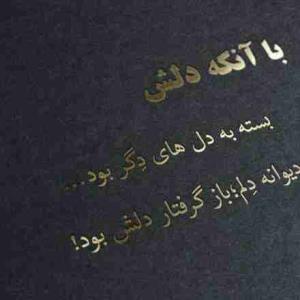 با آنکه دلش
بسته به دل های دِگر بود...
دیوانه دِلم؛باز گرفتار دلش بود!